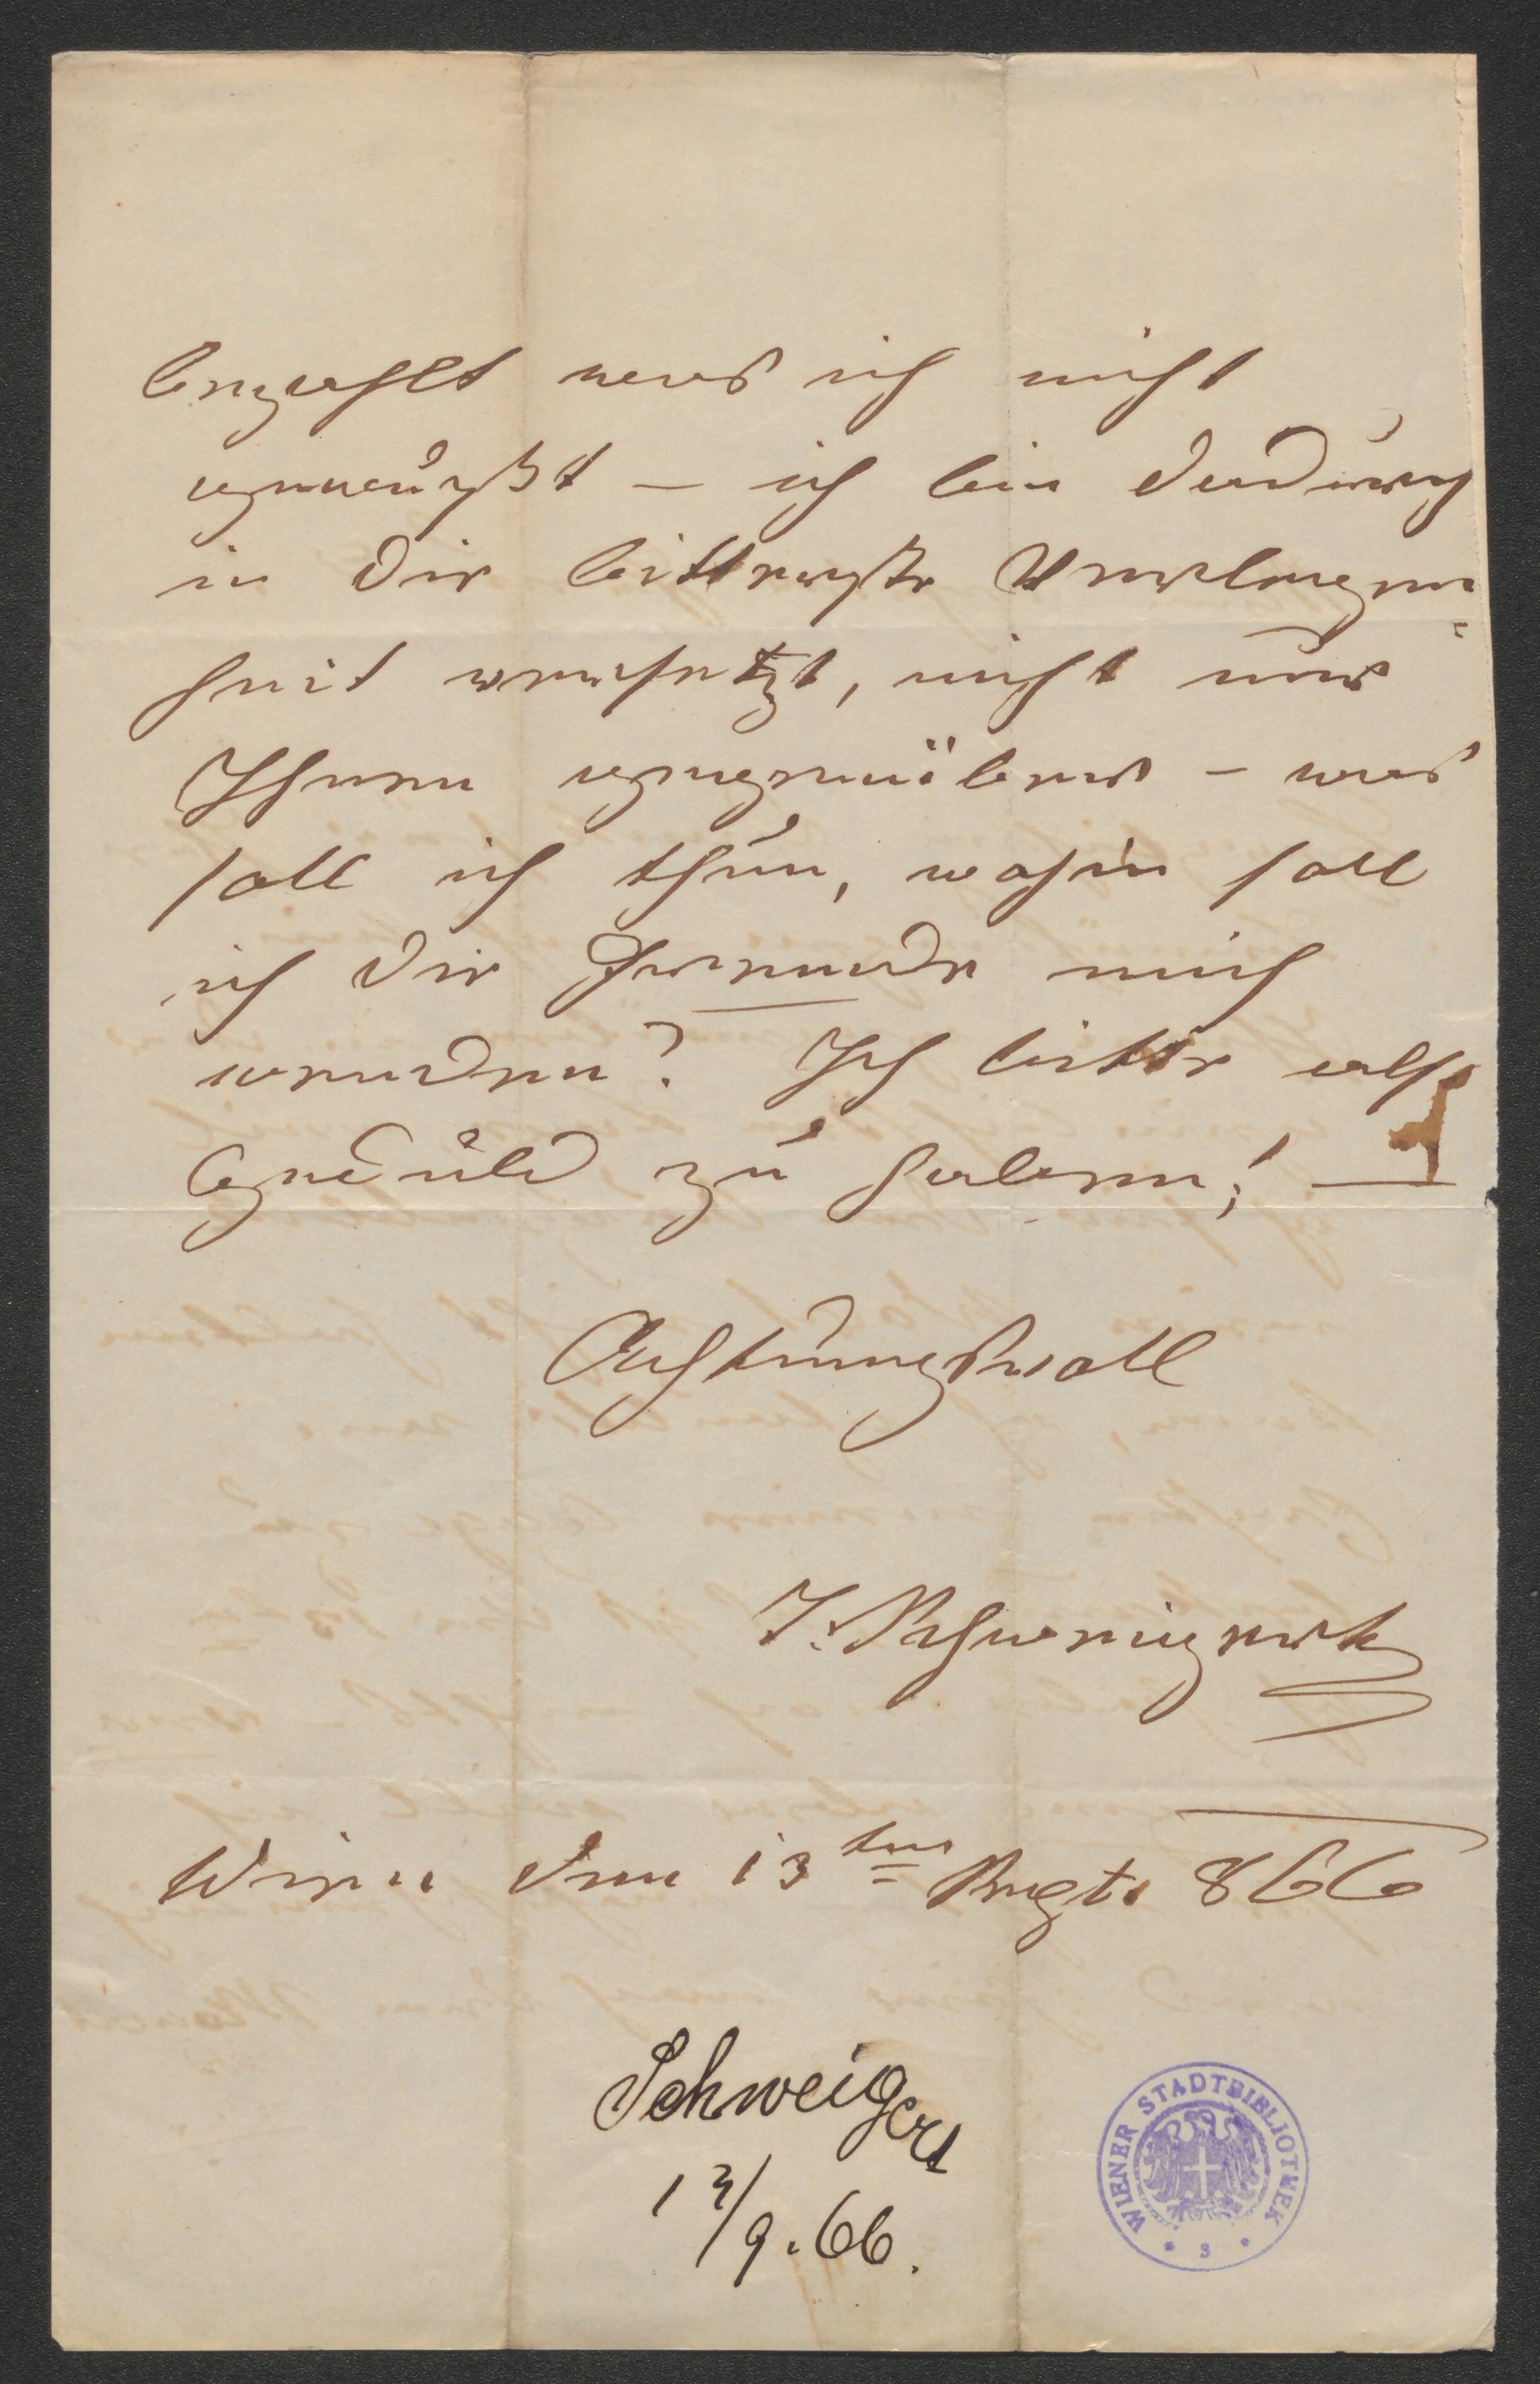 bezahlt was ich nicht
gewußt – ich bin dadurch
in die bitterste Verlegen¬
heit versetzt, nicht nur
Ihnen gegenüber – was
soll ich thun, wohin soll
ich die Fremde mich
wenden? Ich bitte also
Geduld zu haben! —
Achtungsvoll
J. Schweigert
Wien den 13ten Sept. 866
Schweigert
13/9.66.
WIENER STADTBIBLIOTHEK